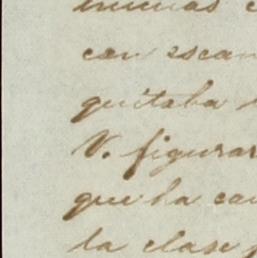 con escan
quitaba
V. figurar
que la ca
la clase